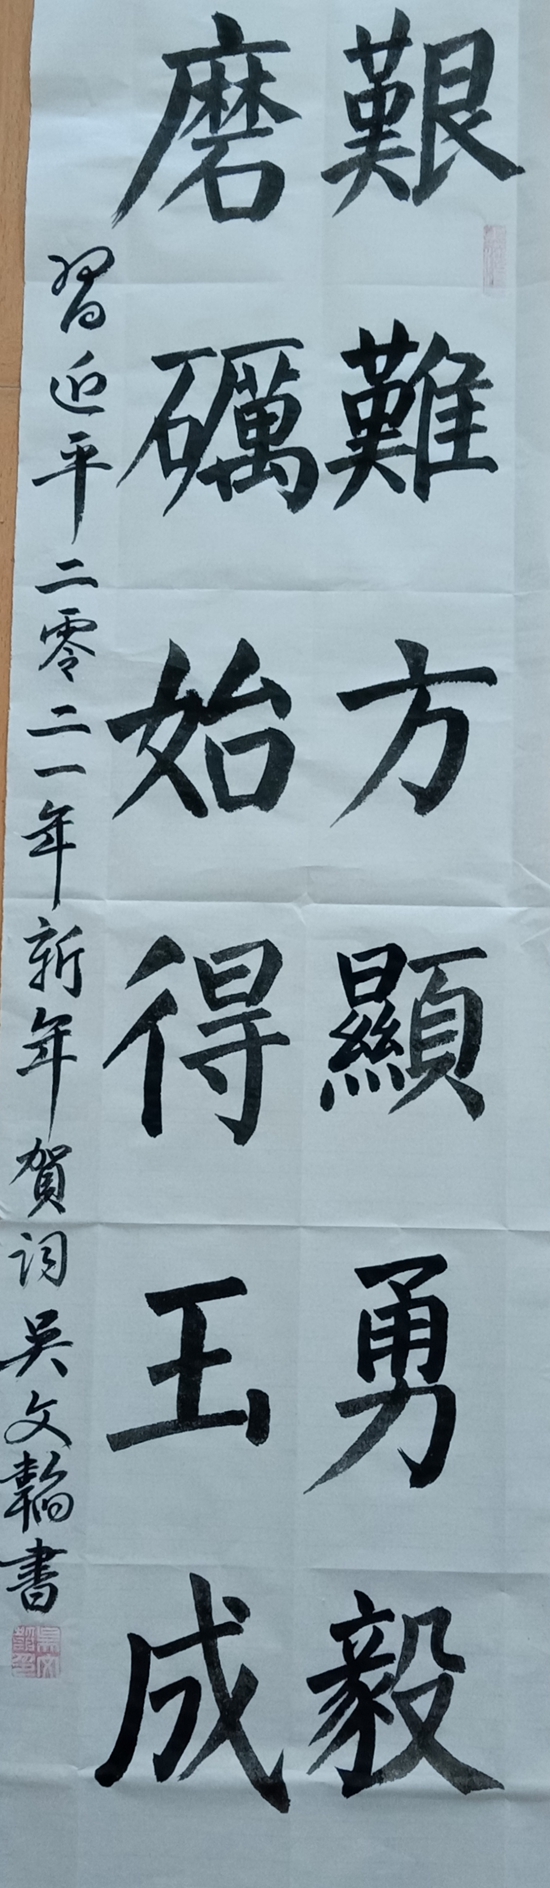 艱難方顯勇毅
磨礪始得玉成
習近平二零二一年新年賀詞吳文翰書